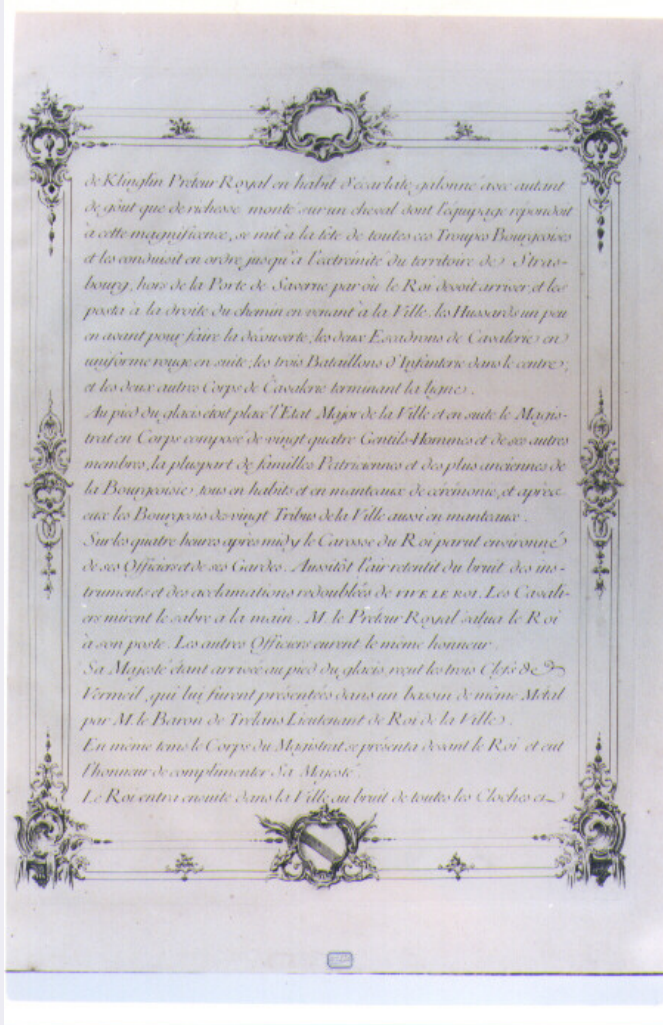 de Klinglin Préteur Royal en habit d'écarlate, galonné avec autant
de goût que de richesse monté sur un cheval dont l'équipage répondoit
à cette magnificence, se mit à la tête de toutes ces Troupes Bourgeoises
et les conduisit en ordre, jusqu'à l'extrémité du territoire de Stras-
bourg, hors de la Porte de Saverne par où le Roi devoit arriver, et les
posta à la droite du chemin en venant à la Ville. les Hussards un peu
en avant pour faire la découverte; les deux Escadrons de Cavalerie en
uniforme rouge en suite; les trois Bataillons d'Infanterie dans le centre;
et les deux autres Corps de Cavalerie terminant la ligne.
Au pied du glacis étoit placé l'Etat Major de la Ville et en suite le Magis-
trat en Corps composé de vingt quatre Gentils-Hommes et de ses autres
membres, la pluspart de familles Patriciennes et des plus anciennes de
la Bourgeoisie, tous en habits et en manteaux de cérémonie, et après
eux les Bourgeois de vingt Tribus de la Ville aussi en manteaux.
Sur les quatre heures après midy le Carosse du Roi parut environné
de ses Officiers et de ses Gardes. Aussitôt l'air retentit du bruit des ins-
truments et des acclamations redoublées de VIVE LE ROI. Les Cavali-
ers mirent le sabre à la main. M. le Préteur Royal salua le Roi
à son poste. Les autres Officiers eurent le même honneur.
Sa Majesté étant arrivée au pied du glacis, reçut les trois Clefs de
Vermeil, qui lui furent présentées dans un bassin de même Métal
par M. le Baron de Trelans Lieutenant de Roi de la Ville.
En même tems le Corps du Magistrat se présenta devant le Roi et eut
l'honneur de complimenter Sa Majesté.
Le Roi entra ensuite dans la Ville au bruit de toutes les Cloches et